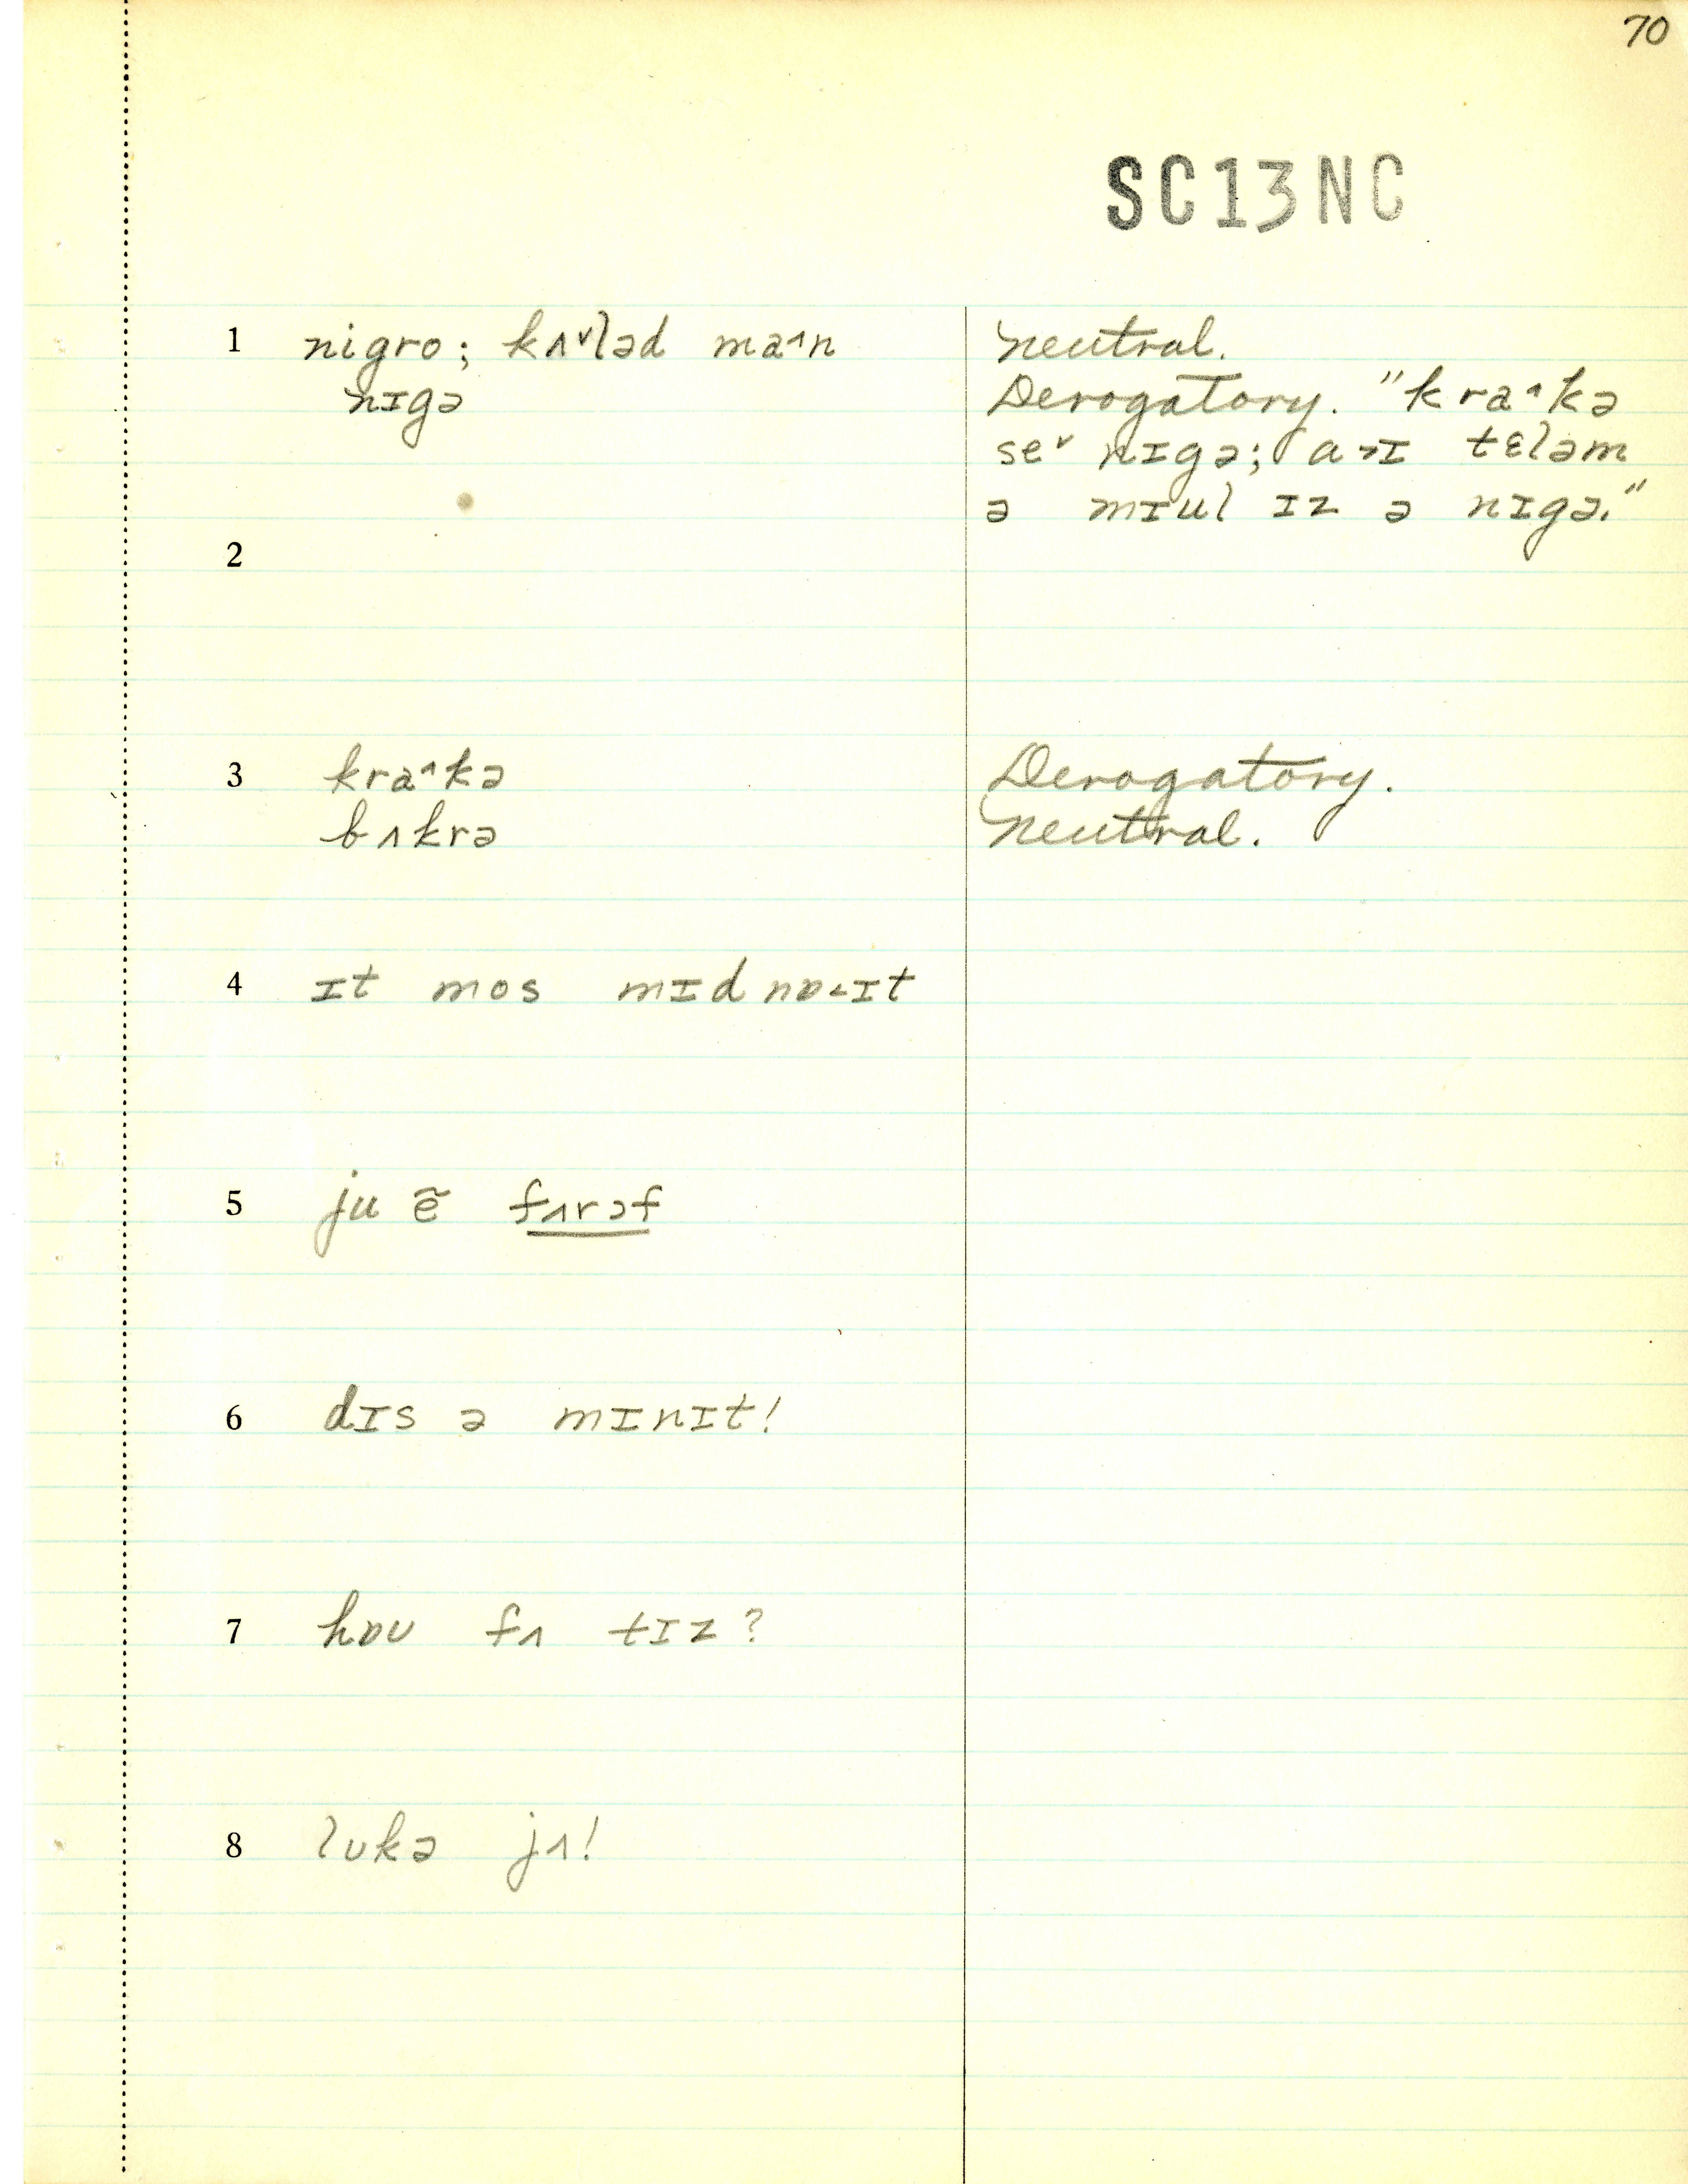 70
SC13NC
1 nigro; kʌ˅ləd ma˄n neutral.
nɪgə Derogatory. "kra˄kə
se˅ nɪgə; a˃ɪ tɛləm
ə mɪul ɪz ə nɪgə."
2
3 kra˄kə Derogatory.
bʌkrə neutral.
4 ɪt mos mɪdnɒ˂ɪt
5 ju ẽ fʌrəf
6 dɪs ə mɪnɪt!
7 hɒʊ fʌ tɪz?
8 lʊkə jʌ!